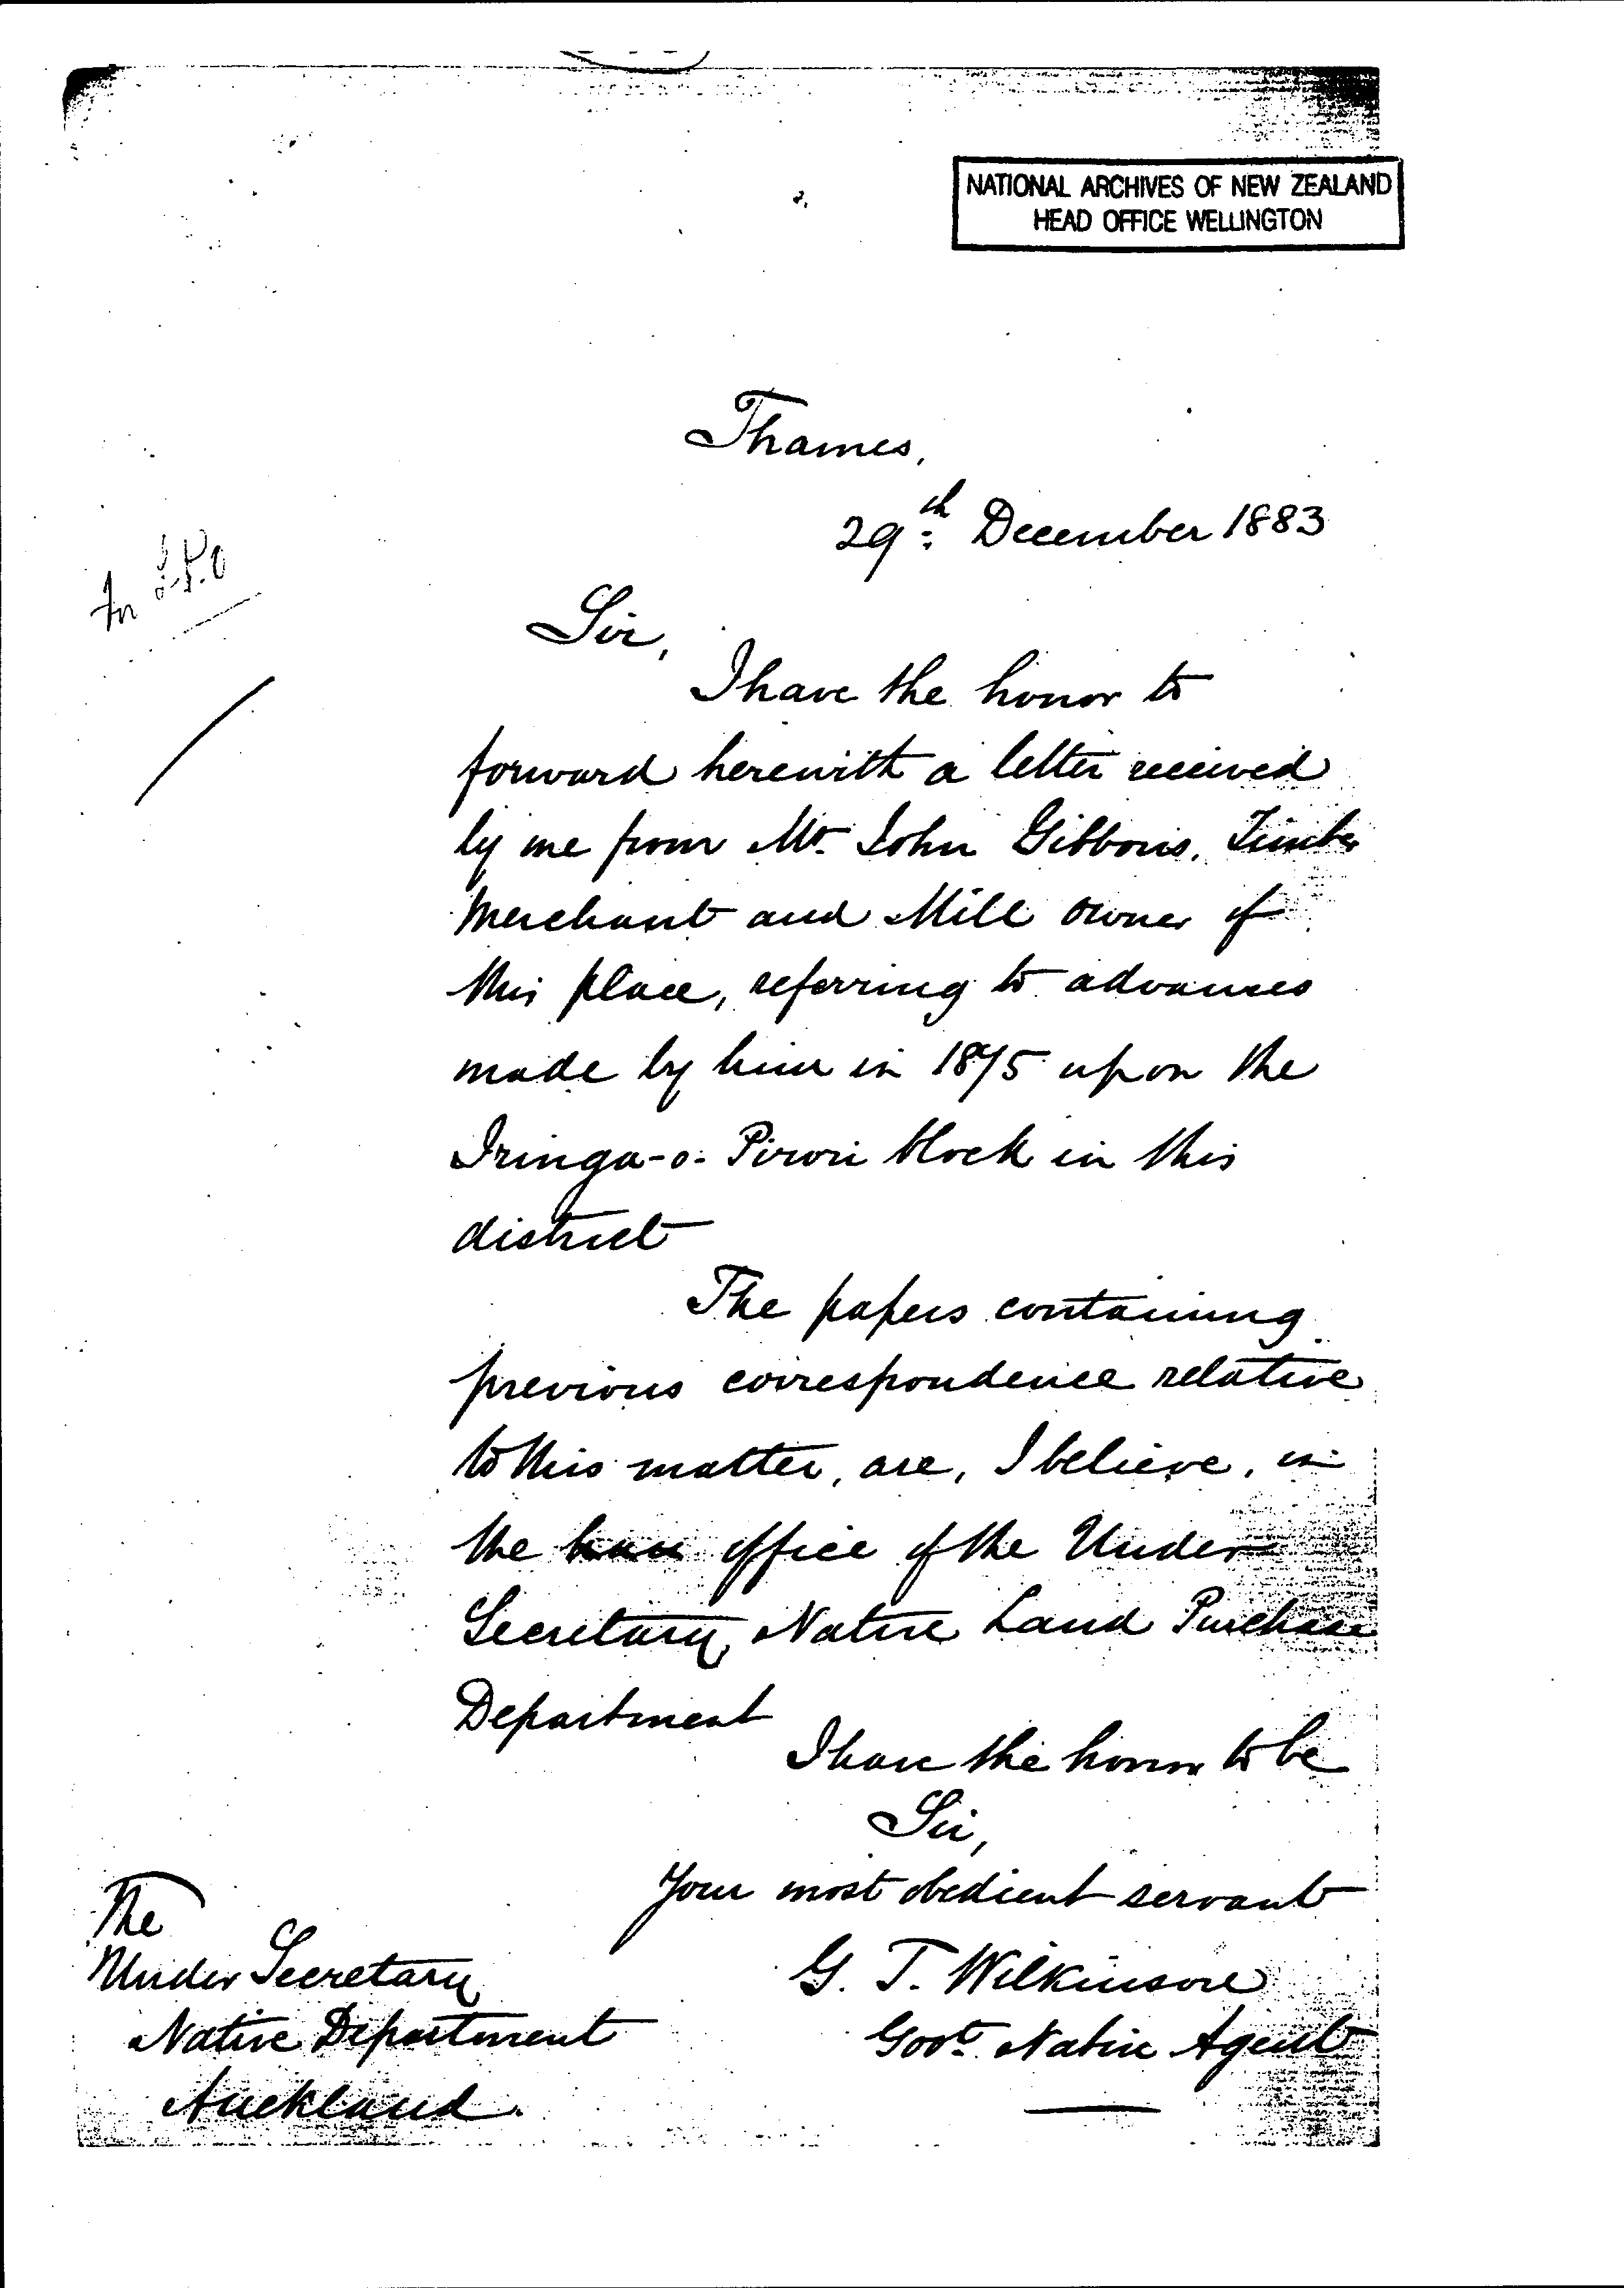 NATIONAL ARCHIVES OF NEW ZEALAND
HEAD OFFICE WELLINGTON
Thames,
29th December 1883
Sir,
I have the honor to
forward herewith a letter received
by me from Mr. John Gibbons, Timber
Merchant and Mill owner of
this place, referring to advances
made by him in 1875 upon the
Iringa-o-Pirori block in this
district
The papers containing
previous correspondence relative
to this matter, are, I believe, in
the office of the Under
Secretary, Native Land Purchase
Department
I have the honor to be
Sir,
Your most obedient servant
G. T. Wilkinson
Govt. Native Agent
The
Under Secretary
Native Department
Auckland.